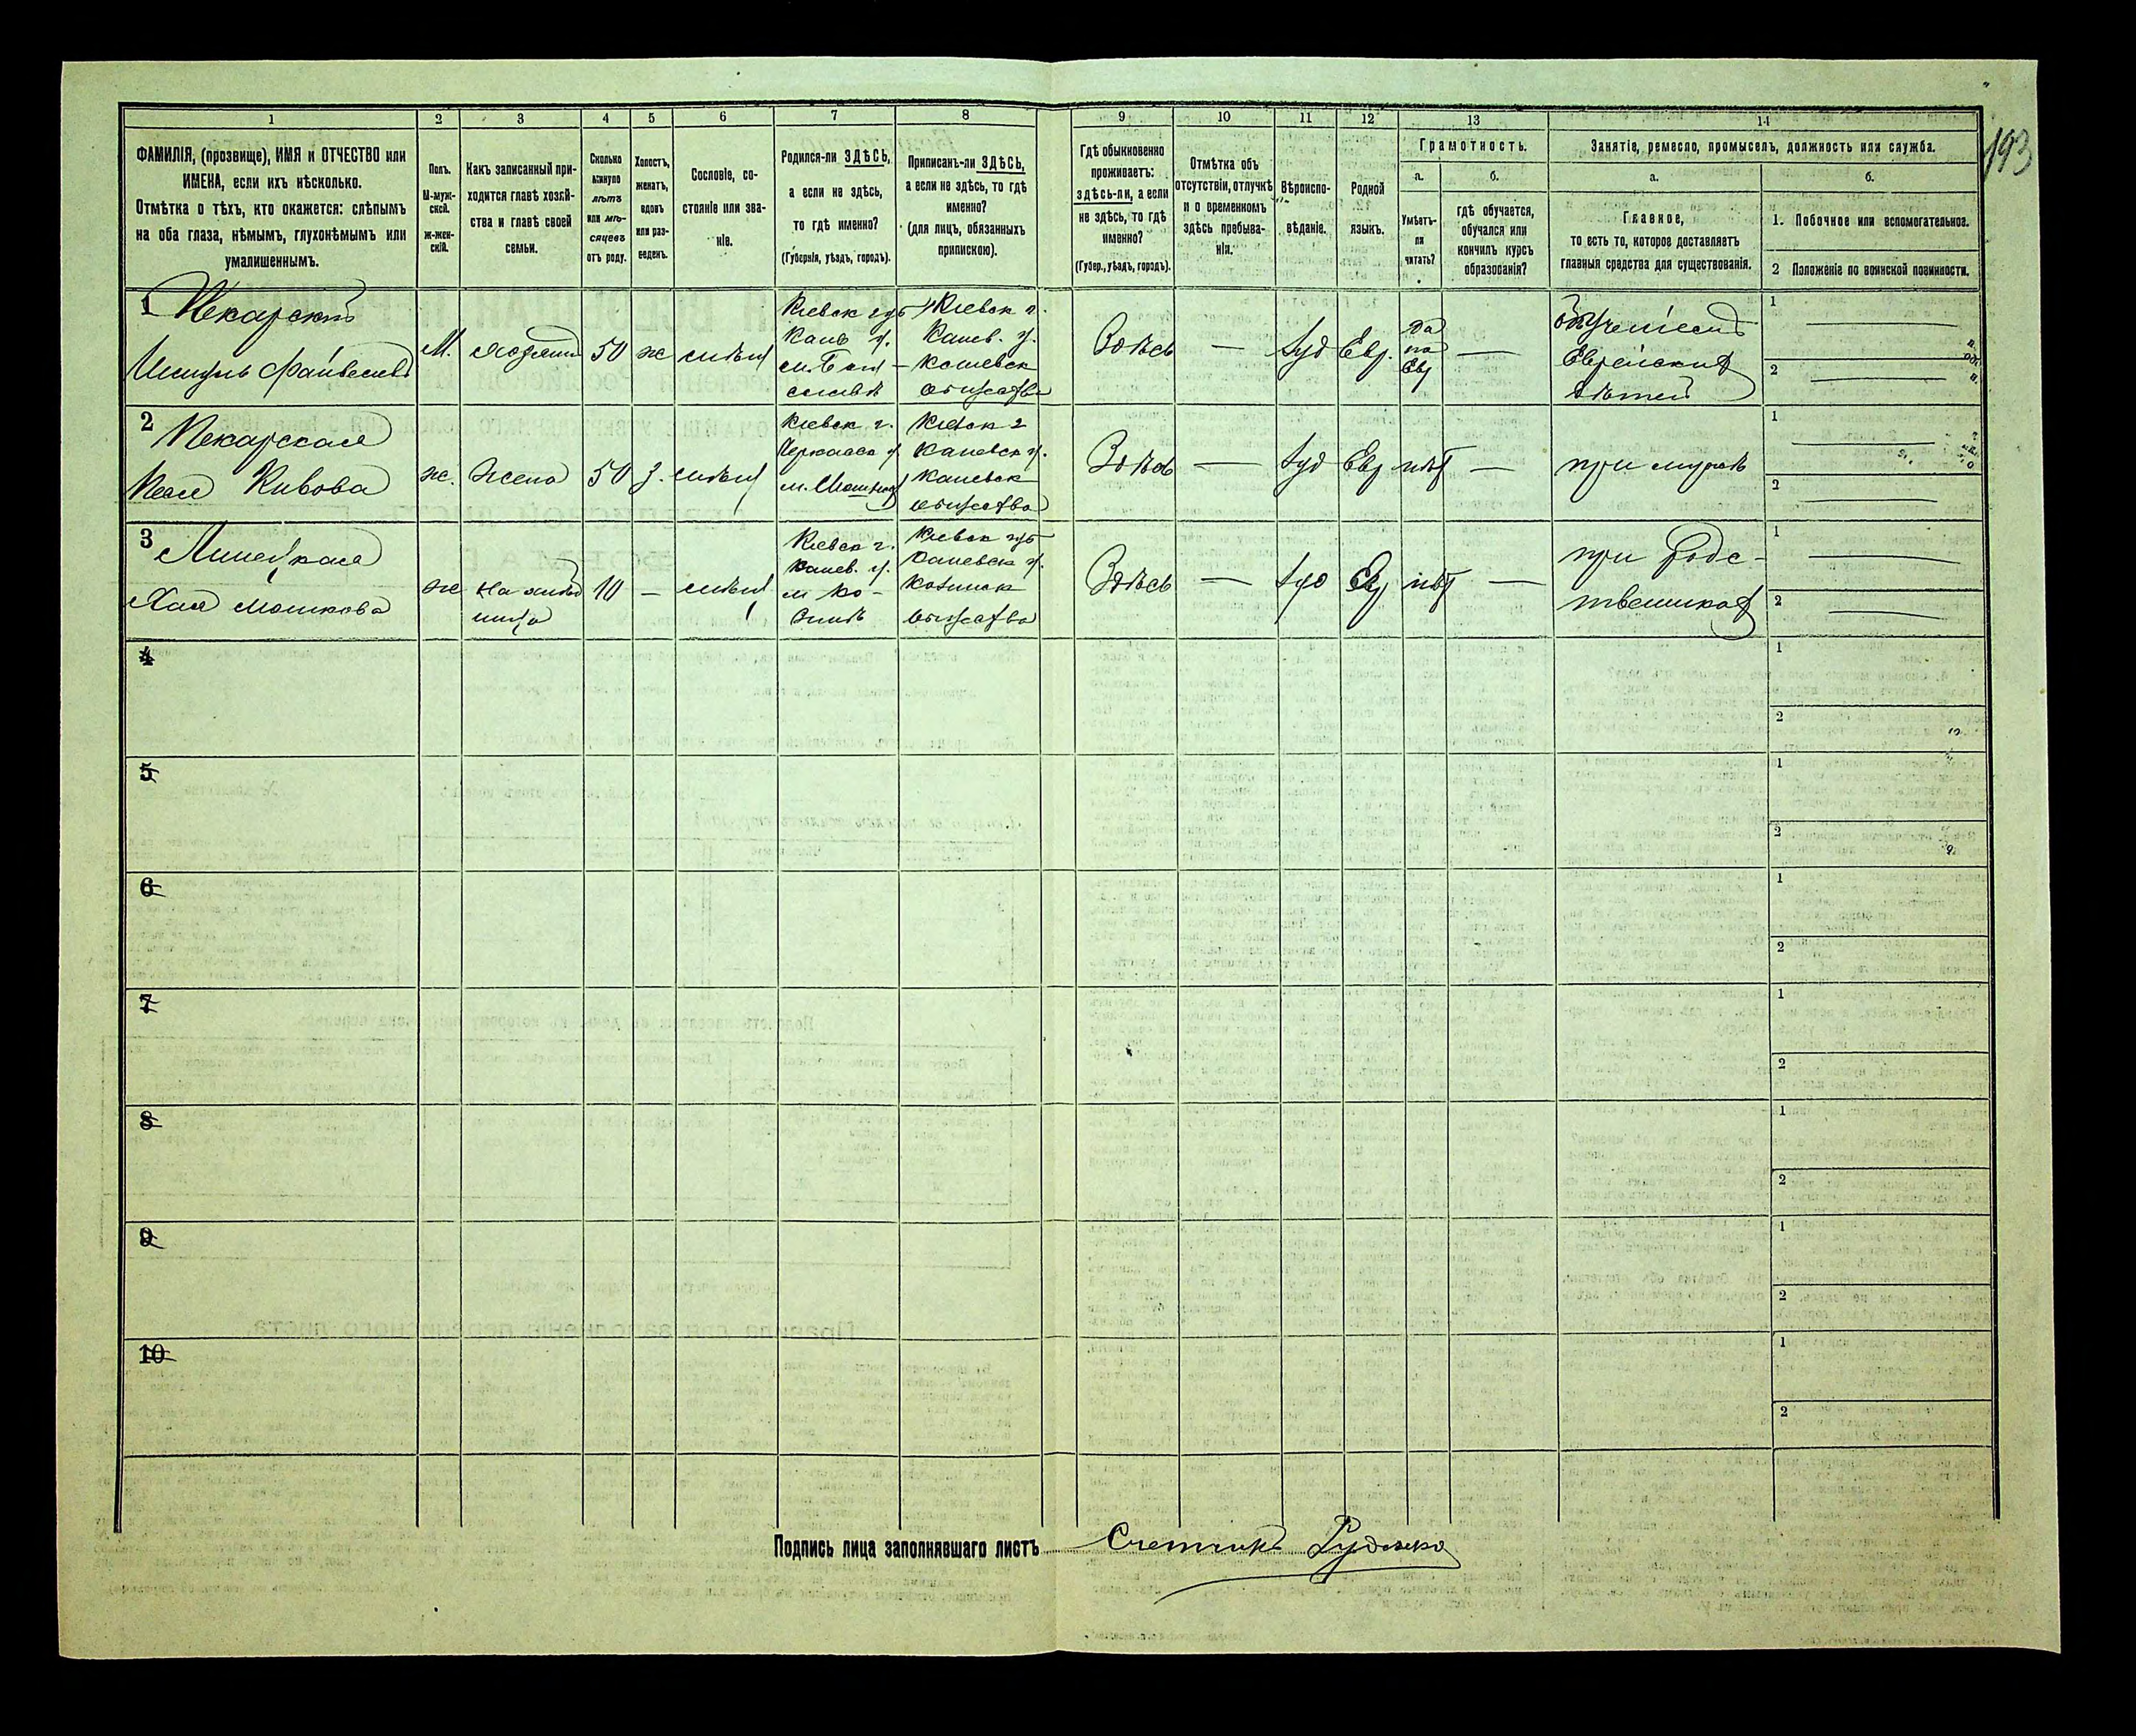 193
1
2
3
4
5
6
7
8
9
10
11
12
13
14
ФАМИЛІЯ, (прозвище), ИМЯ и ОТЧЕСТВО или
ИМЕНА, если ихъ нѣсколько.
Отмѣтка о тѣхъ, кто окажется: слѣпымъ
на оба глаза, нѣмымъ, глухонѣмымъ или
умалишеннымъ.
Полъ.
М-муж-
ской.
ж-жен-
скій.
Какъ записанный при-
ходится главѣ хозяй-
ства и главѣ своей
семьи.
Сколько
минуло
лѣтъ
или мѣ-
сяцевъ
отъ роду.
Холостъ,
женатъ,
вдовъ
или раз-
веденъ.
Сословіе, со-
стояніе или зва-
ніе.
Родился-ли ЗДѢСЬ,
а если не здѣсь,
то гдѣ именно?
(Губернія, уѣздъ, городъ).
Приписанъ-ли ЗДѢСЬ,
а если не здѣсь, то гдѣ
именно?
(для лицъ, обязанныхъ
припискою).
Гдѣ обыкновенно
проживаетъ:
здѣсь-ли, а если
не здѣсь, то гдѣ
именно?
(Губер., уѣздъ, городъ).
Отмѣтка объ
отсутствіи, отлучкѣ
и о временномъ
здѣсь пребыва-
ніи.
Вѣроиспо-
вѣданіе.
Родной
языкъ.
Грамотность.
а.
Умѣетъ-
ли
читать?
б.
гдѣ обучается,
обучался или
кончилъ курсъ
образованія?
Занятіе, ремесло, промыселъ, должность или служба.
а.
Главное,
то есть то, которое доставляетъ
главныя средства для существованія.
б.
1. Побочное или вспомогательное.
2 Положеніе по воинской повинности.
1
Пекарскій
М.
хозяинъ
50
ж
Кіевск губ
Кан. у.
Кіевск г.
Канев. у.
общества
Здѣсь
—
Іуд
Евр.
да
по
Евр
—
обученіемъ
Еврейских
дѣтей
1
2
2
Пекарская
Кивова
ж.
Жена
50
З.
Кіевск г.
Черкасск у
Кіевск г
Каневск у.
Каневск
общества
Здѣсь
—
Іуд
Евр
нѣт
—
при мужѣ
1
2
3
Линецкая
Хая Мошкова
ж
10
—
Кіевск г.
Канев. у.
м Ко-
зинѣ
Кіевск губ
Каневск у.
Козинск
общества
Здѣсь
—
Іуд
Ев
нѣт
—
при родс-
твенниках
1
2
4
1
2
5
1
2
6
1
2
7
1
2
8
1
2
9
1
2
10
1
2
Подпись лица заполнявшаго листъ Счетчикъ